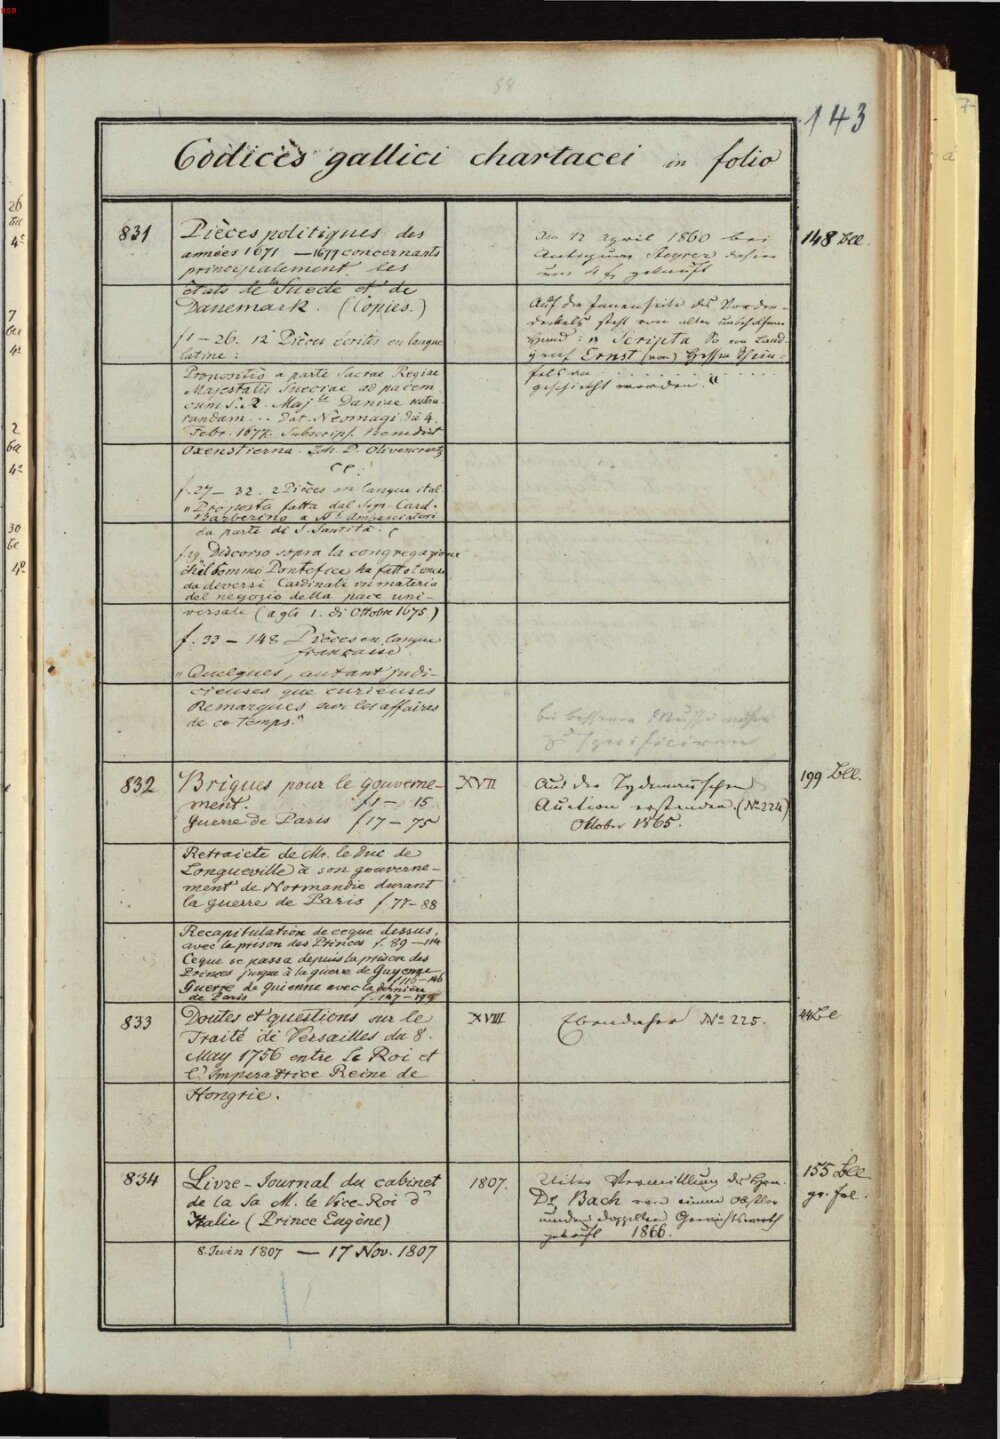 143
Codices gallici chartacei in folio
831
Pièces politiques des
années 1671 — 1677 concernants
principalement les
états de Suede et de
Danemark. (Copies.)
f 1 — 26. 12 Pièces écrites en langue
latine:
Propositio a parte Sacrae Regiae
Majestatis Sueciae ad pacem
cum S. R. Maj te Daniae restau
randam... Dat. Neomagi d. 4.
Febr. 1677. Subscrips. Benedict
Oxenstierna. Joh. P. Olivencrantz
f. 27 — 32. 2 Pièces en langue ital.
"Proposta fatta dal Sign. Card.
Barberino a Sri Ambasciatori
da parte di S. Santità.
f 29. Discorso sopra la congregazione
che il sommo Pontefice ha fatto tenere
da diversi Cardinali in materia
del negozio della pace uni-
versale (agli 1. di Ottobre 1675)
f. 33 — 148 Pièces en langue
française:
"Quelques, autant judi-
cieuses que curieuses
Remarques sur les affaires
de ce temps."
Am 12 April 1860 bei
Antiquar Steyrer dahier
um 4 fl gekauft
Auf der Innenseite des Vorder-
deckels steht von alter
Hand: "Scripta So von Land-
graf Ernst (von) Hessen Rhein-
fels an . . . . . . . . . .
geschickt worden."
148 Bll.
bei besserer Muße näher
zu specificiren
832
Brigues pour le gouverne-
ment. f 1 — 15
Guerre de Paris f 17 — 75
Retraicte de Mr. le Duc de
Longueville à son gouverne-
ment de Normandie durant
la guerre de Paris f 77 — 88
Recapitulation de ceque dessus,
avec la prison des Princes f. 89 — 114
Ceque se passa depuis la prison des
Princes jusque à la guerre de Guyenne
f 116 — 146
Guerre de Guienne avec la derniere
de Paris f. 147 — 199
XVII
Aus der Tydeman'schen
Auction erstanden. (No 224)
Oktober 1865.
199 Bll.
833
Doutes et questions sur le
Traité de Versailles du 8.
May 1756 entre Le Roi et
l'Imperatrice Reine de
Hongrie.
XVIII
Ebendaher No 225.
44 Bl
834
Livre-Journal du cabinet
de la Sa M. le Vice-Roi d'
Italie (Prince Eugène)
8. Juin 1807 — 17 Nov. 1807
1807.
Unter Vermittlung des Hrn.
Dr Bach von einem Obstler
um den doppelten Gewichtswerth
gekauft 1866.
155 Bll
gr. fol.